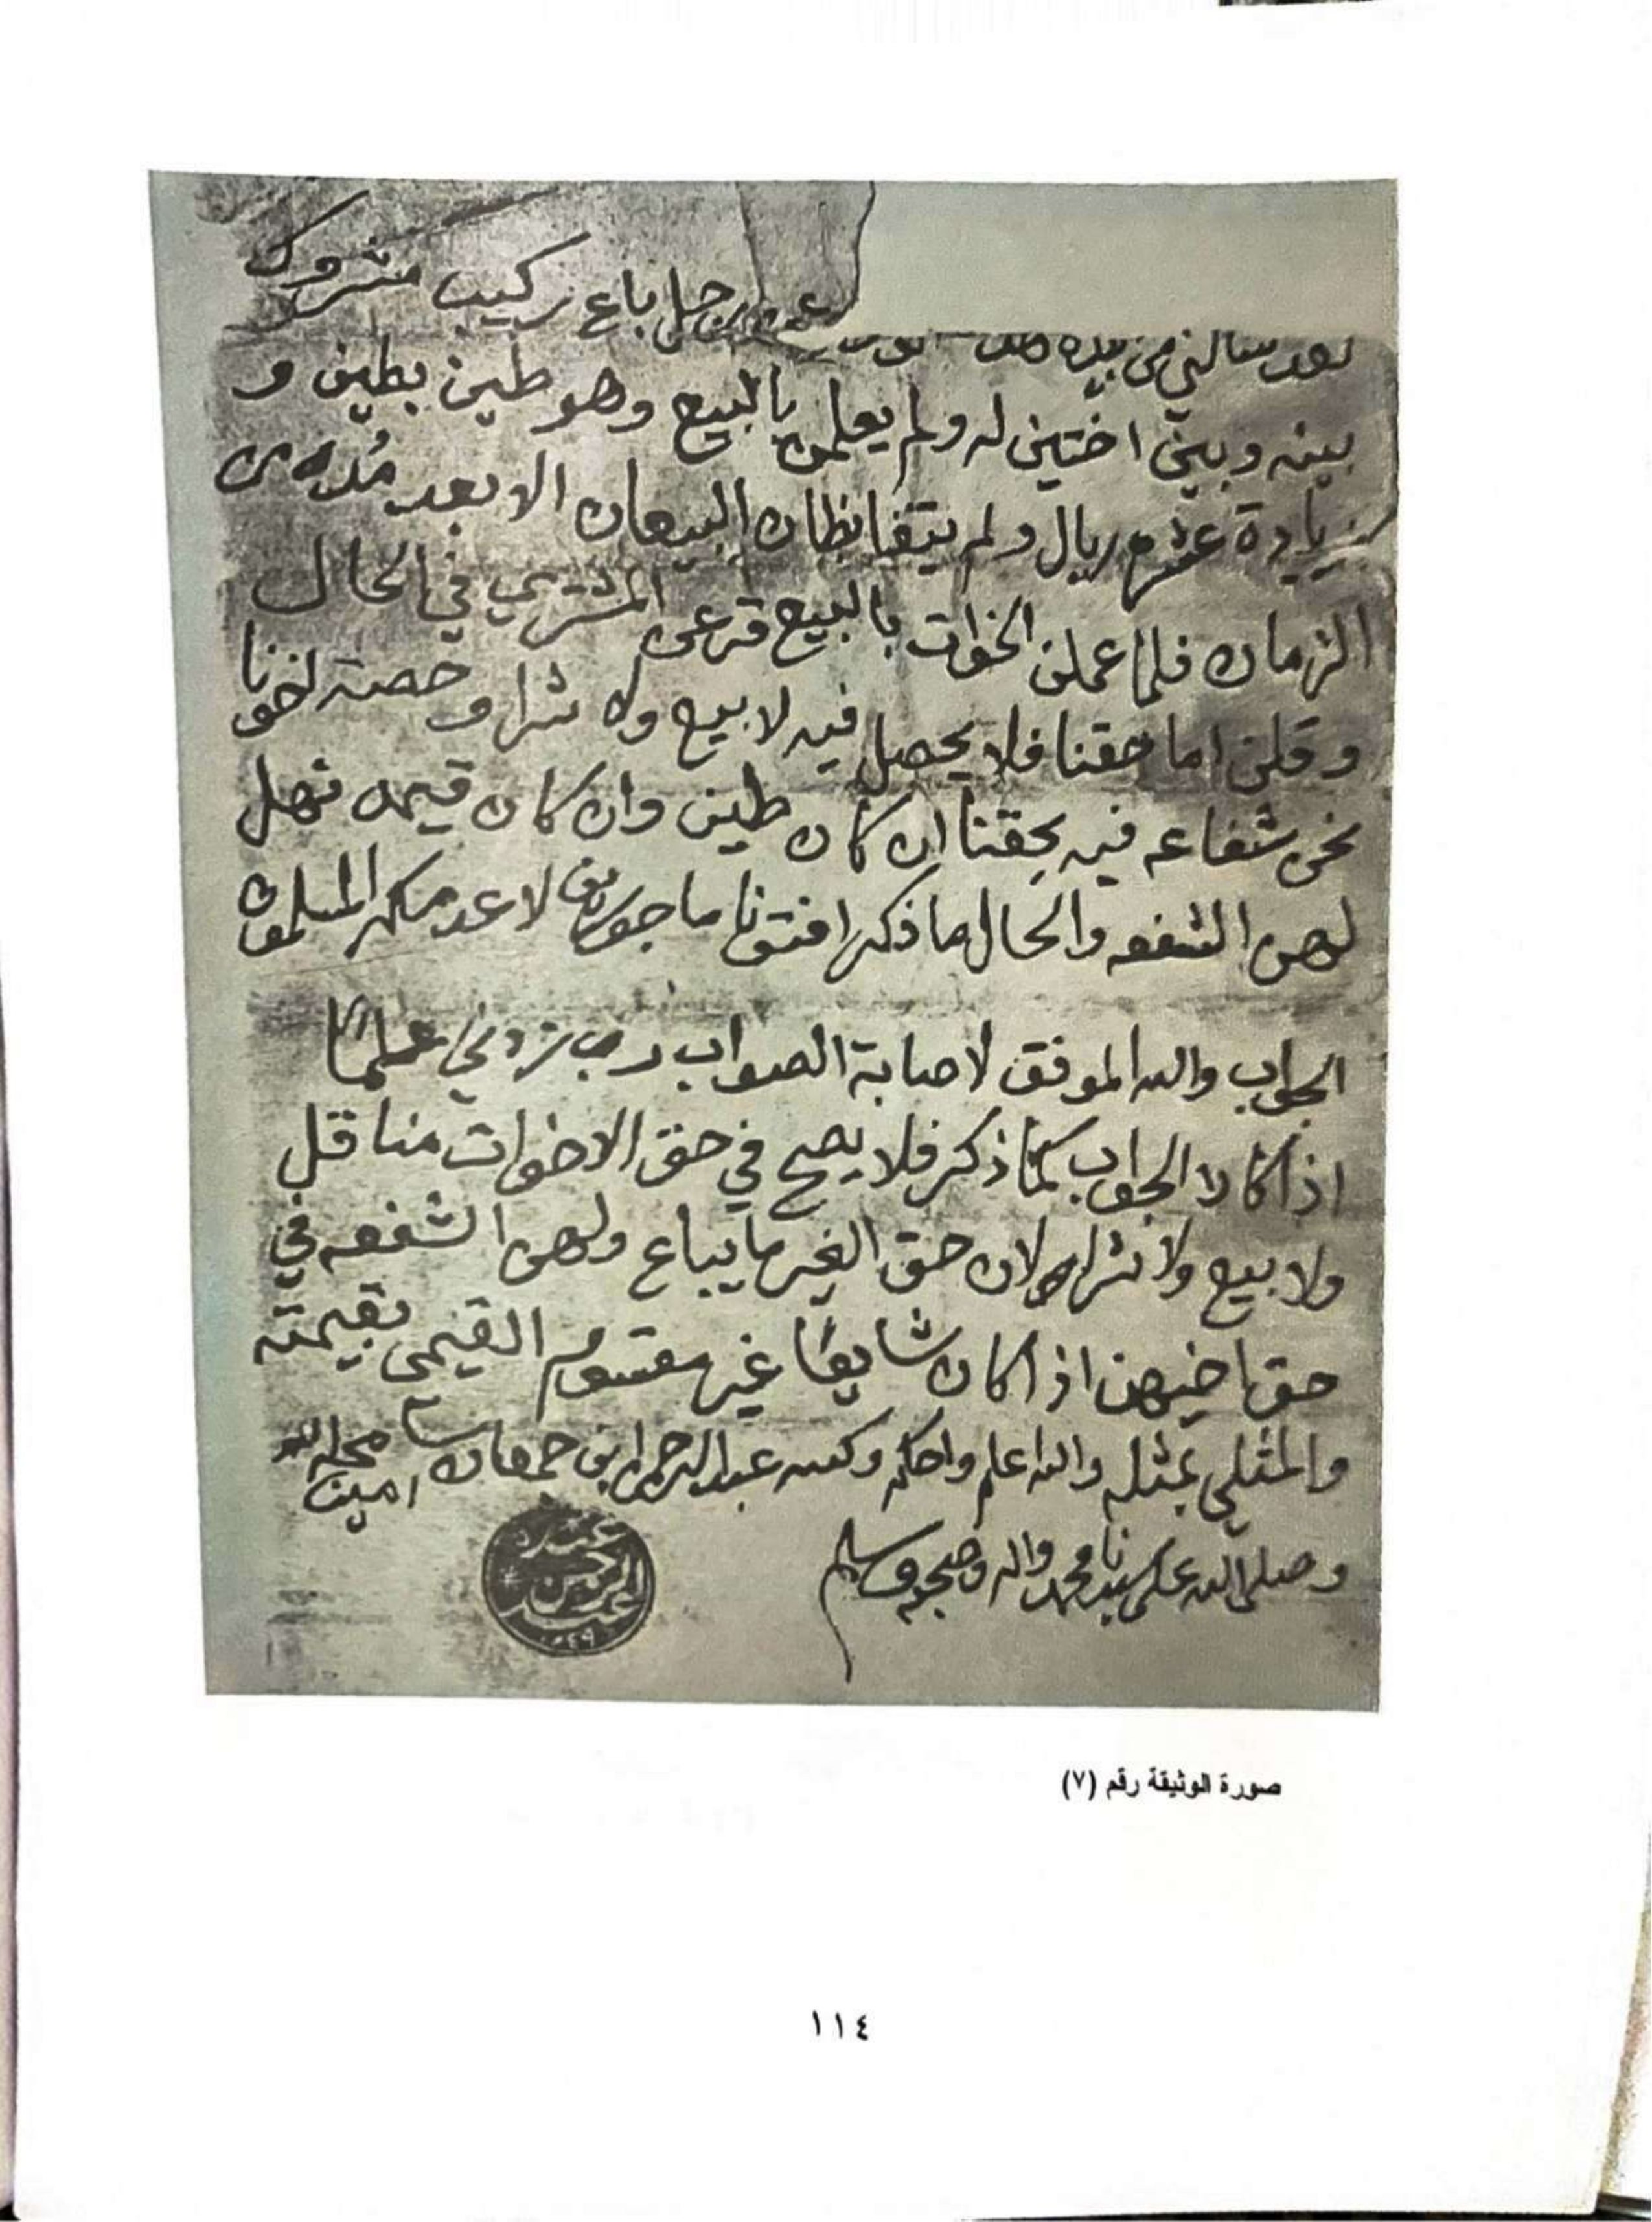 رجل باع ركيب مشروك
لقد سالني من بيده هذا
بينه وبين اختين له ولم يعلمن بالبيع وهو طين بطين و
زيادة عشره ريال ولم يتقابظان البيعان الا بعد مُده من
الزمان فلما عملن الخوات بالبيع قرعن المشتري في الحال
وقلن اما حقنا فلا يحصل فيه لا بيع ولا شرا وحصة اخونا
نحن شفاعه فيه بحقنا ان كان طين وان كان قيمه فهل
لهن الشفعه والحال ما ذكر افتونا ماجورين لا عدمكم المسلمون
الجواب والله الموفق لاصابة الصواب رب زدني علمًا
اذا كان الجواب كما ذكر فلا يصح في حق الاخوات مناقل
ولا بيع ولا شراء لان حق الغير ما يباع ولهن الشفعه في
حق اخيهن اذا كان شايعًا غير مقسوم القيمي بقيمته
والمثلي بمثله والله اعلم واحكم وكتبه عبد الرحمن ابن جمعان سامحه الله
امين
وصلى الله على سيدنا محمد واله وصحبه وسلم
صورة الوثيقة رقم (٧)
١١٤